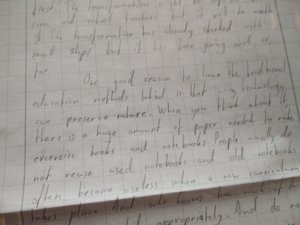 first. The transformation might be
some old school teachers but it will be worth
it. The transformation has already started with
small steps but it has been going well so
far.
One good reason to leave the traditional
education methods behind is that technology
can preserve nature. When you think about it,
there is a huge amount of paper needed to make
exercise books and notebooks. People usually do
not reuse used notebooks and old notebooks
often become useless when a new curriculum
takes place. And who knows how much of
appropriately. And do no